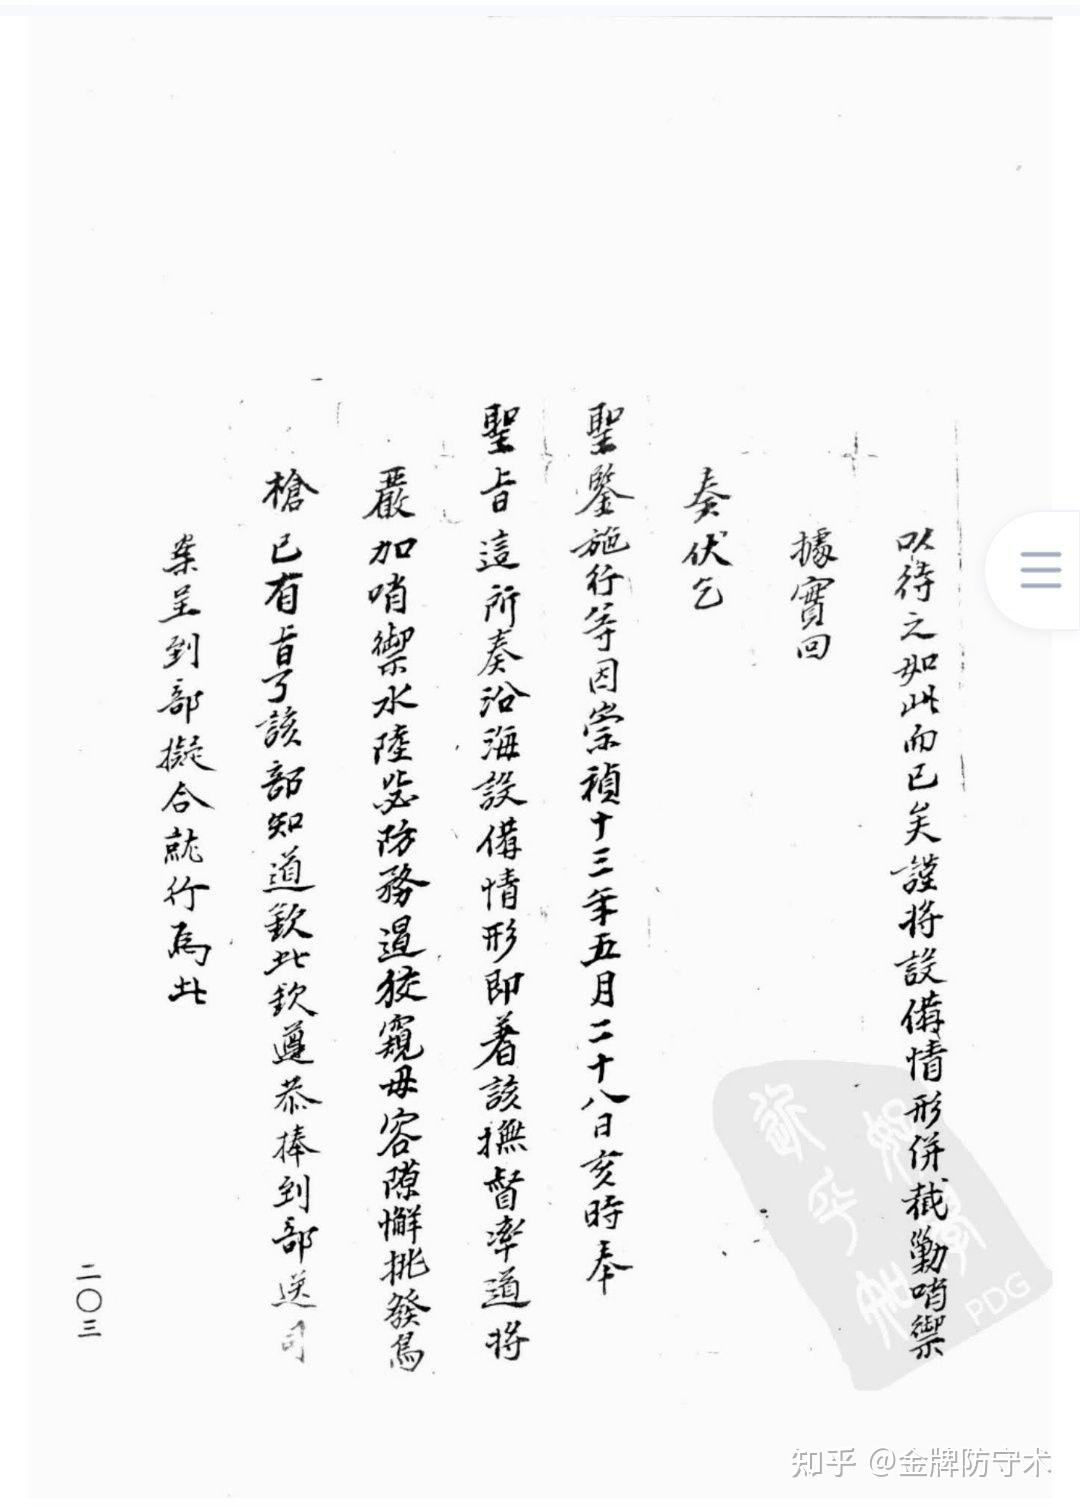 以待之如此而已矣謹將設備情形併截勦哨禦
據實回
奏伏乞
聖鑒施行等因崇禎十三年五月二十八日亥時奉
聖旨這所奏沿海設備情形即著該撫督率道將
嚴加哨禦水陸毖防務遏狡窺毋容隙懈挑發鳥
槍已有旨了該部知道欽此欽遵恭捧到部送司
案呈到部擬合就行為此
二〇三
PDG
知乎 @金牌防守术